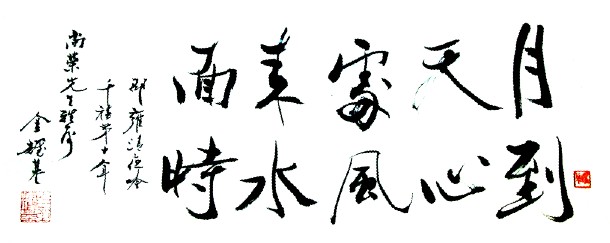 月到
天心
處風
来水
面時
邵雍清夜吟
千禧第十年
尚榮先生
金耀基